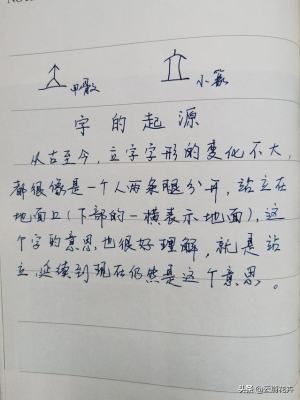 甲骨文 小篆
字的起源
从古至今,立字字形的变化不大,
都很像是一个人两条腿分开,站立在
地面上(下部的一横表示地面),这
个字的意思也很好理解,就是站
立,延续到现在仍然是这个意思。
头条 @云腾花卉